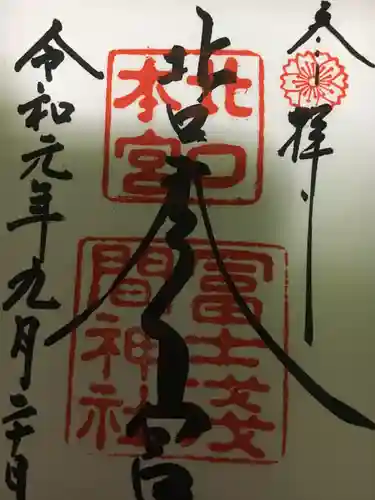 奉拝
北口本宮
冨士浅
間神社
令和元年九月二十日